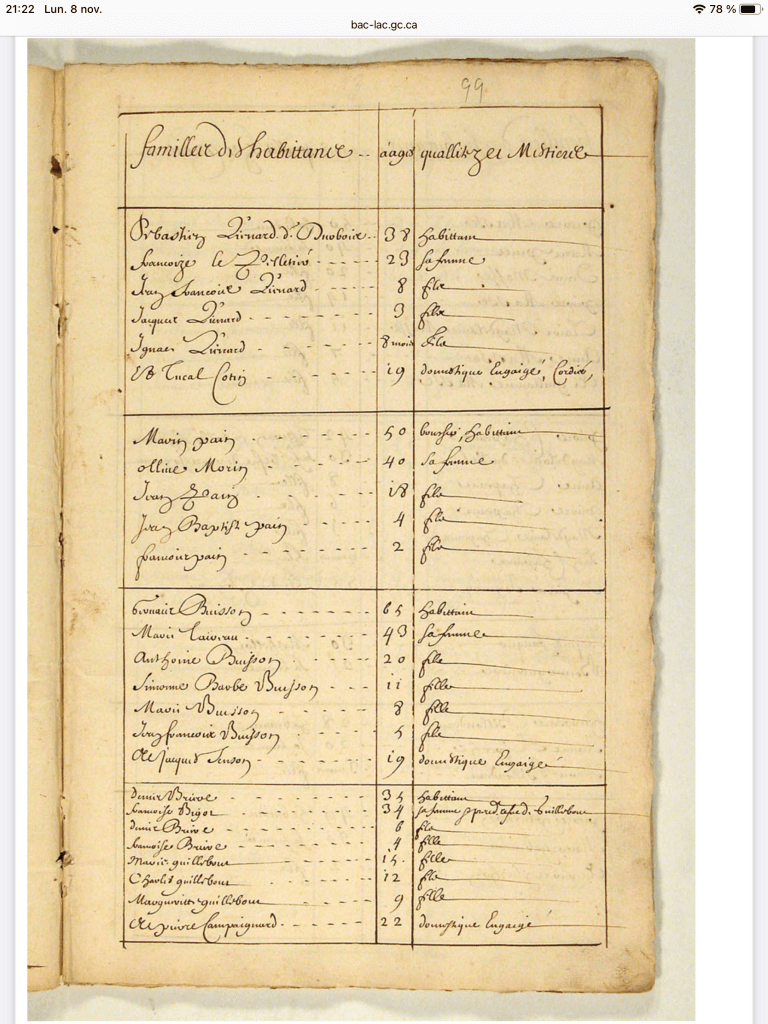 21:22 Lun. 8 nov. 78 %
bac-lac.gc.ca
99
familles d'habittans aages quallitez et Mestiers
Sebastien Lienard d. Duobois 38 habittant
francoize le Pelletier 23 sa femme
Jean francois Lienard 8 filz
Jacques Lienard 3 filz
Ignace Lienard 8 mois filz
19 domestique Engaigé, Cordier,
Marin pain 50 habittant
Morin 40 sa femme
Jean pain 18 filz
Jean Baptiste pain 4 filz
francois pain 2 filz
Gervais Buisson 65 habittant
Marie 43 sa femme
Anthoine Buisson 20 filz
Simonne Barbe Buisson 11 fille
Marie Buisson 8 fille
Jean francois Buisson 5 filz
Jacques 19 domestique Engaigé
Denis Brière 35 habittant
francoise Bigot 34 sa femme Guillebour
denis Brière 6 filz
francoise Brière 4 fille
Marie guillebour 15 fille
Charles guillebour 12 filz
Margueritte guillebour 9 fille
pierre Campaignard 22 domestique Engaigé